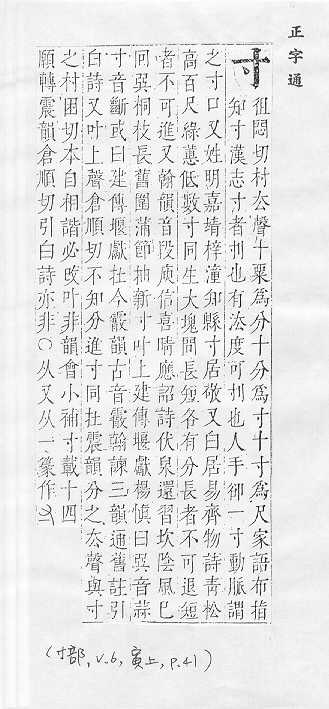 正字通
寸
祖悶切村厺聲十粟爲分十分爲寸十寸爲尺家語布指
知寸漢志寸者忖也有法度可忖也人手卻一寸動脈謂
之寸口又姓明嘉靖梓潼知縣寸居敬又白居易齊物詩靑松
高百尺綠蕙低數寸同生大塊間長短各有分長者不可退短
者不可進又翰韻音段庾信喜晴應詔詩伏泉還習坎陰風已
回巽桐枝長舊圍蒲節抽新寸叶上建傳堰獻楊愼曰巽音蒜
寸音斷或曰建傳堰獻扗今霰韻古音霰翰諫三韻通舊註引
白詩又叶上聲倉順切不知分進寸同扗震韻分之厺聲與寸
之村困切本自相諧必改叶非韻會小補寸載十四
願轉震韻倉順切引白詩亦非○从又从一篆作
(寸部, v.6, 寅上, p.41)